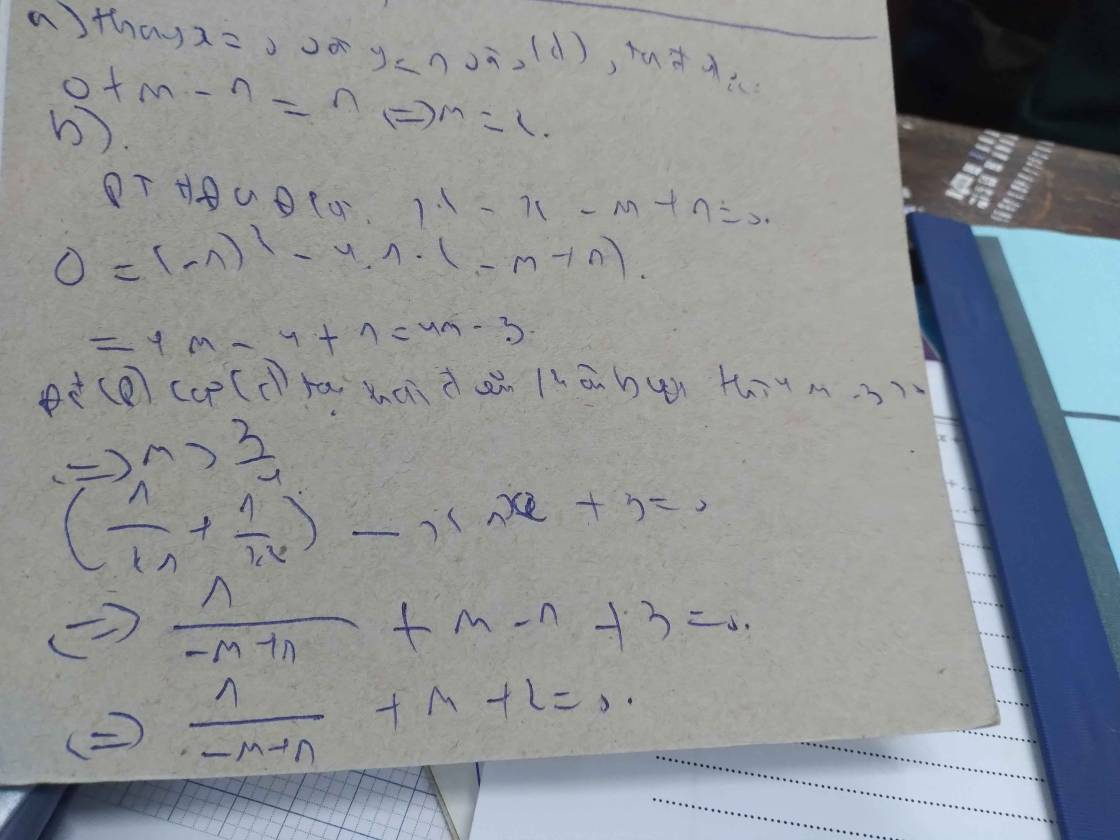 a) thay x = 0 và y = 1 vào (d), ta được:
0 + m - 1 = 1 <=> m = 2.
b).
PT HĐGĐ là: x² - x - m + 1 = 0.
Δ = (-1)² - 4.1.(-m + 1).
= 4m - 4 + 1 = 4m - 3.
Để (P) cắt (d) tại hai điểm phân biệt thì 4m - 3 > 0
<=> m > 3/4.
(1/x1 + 1/x2) - x1x2 + 3 = 0
<=> 1/(-m+1) + m - 1 + 3 = 0.
<=> 1/(-m+1) + m + 2 = 0.